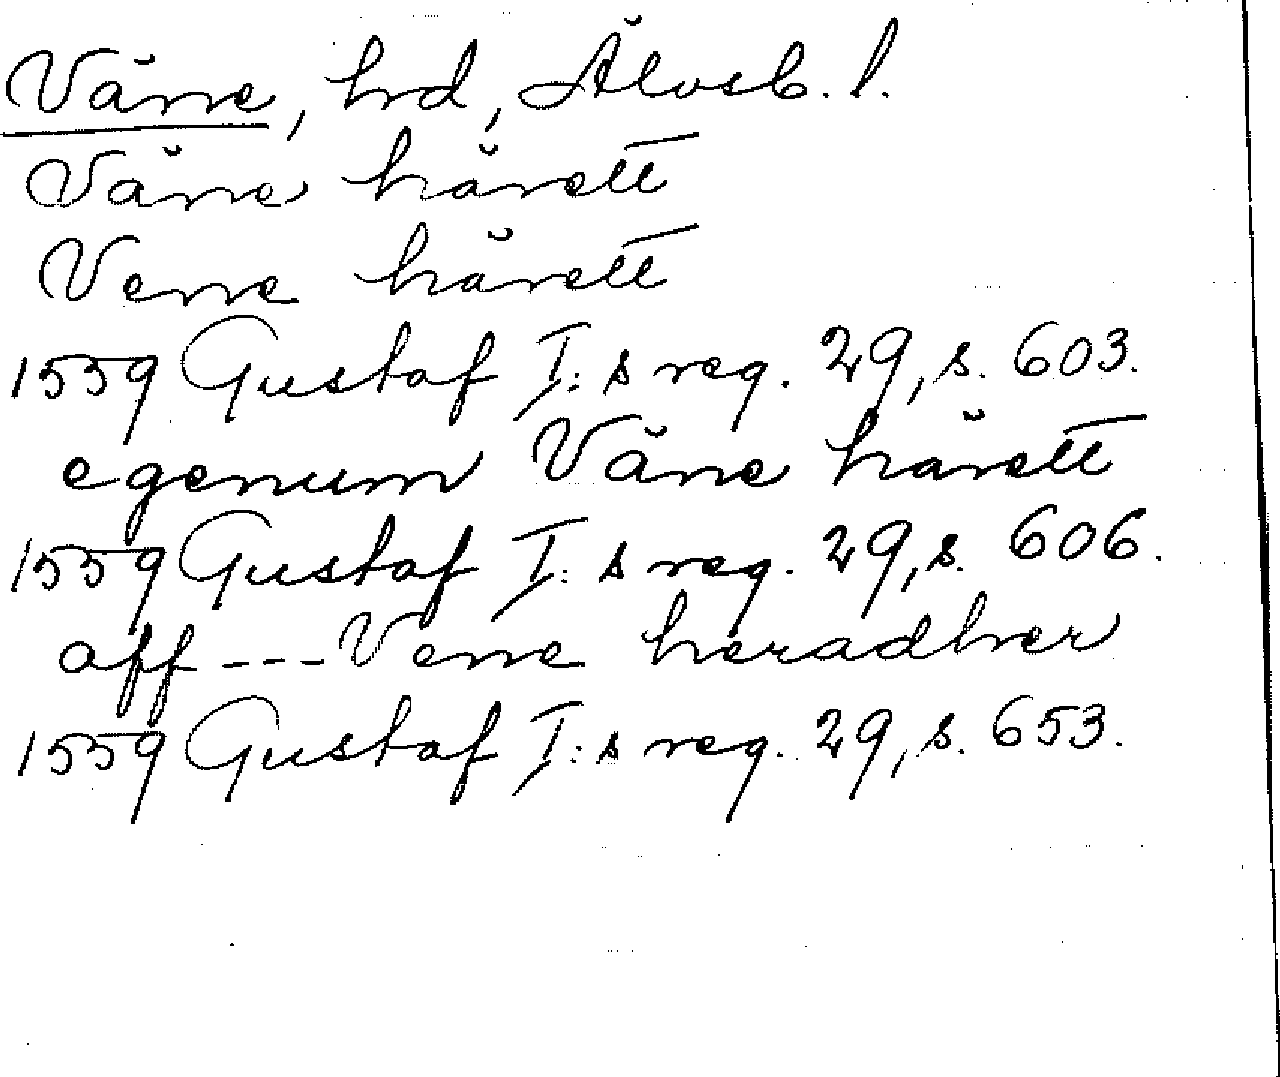 Väne, hrd, Älvsb. l.
Väne härett
Vene härett
1559 Gustaf I:s reg. 29, s. 603.
egenum Väne härett
1559 Gustaf I:s reg. 29, s. 606.
aff --- Vene heradher
1559 Gustaf I:s reg. 29, s. 653.